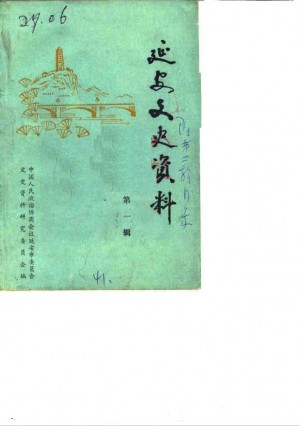 29.06
延安文史资料
第一辑
中国人民政治协商会议延安市委员会
文史资料研究委员会编
41.